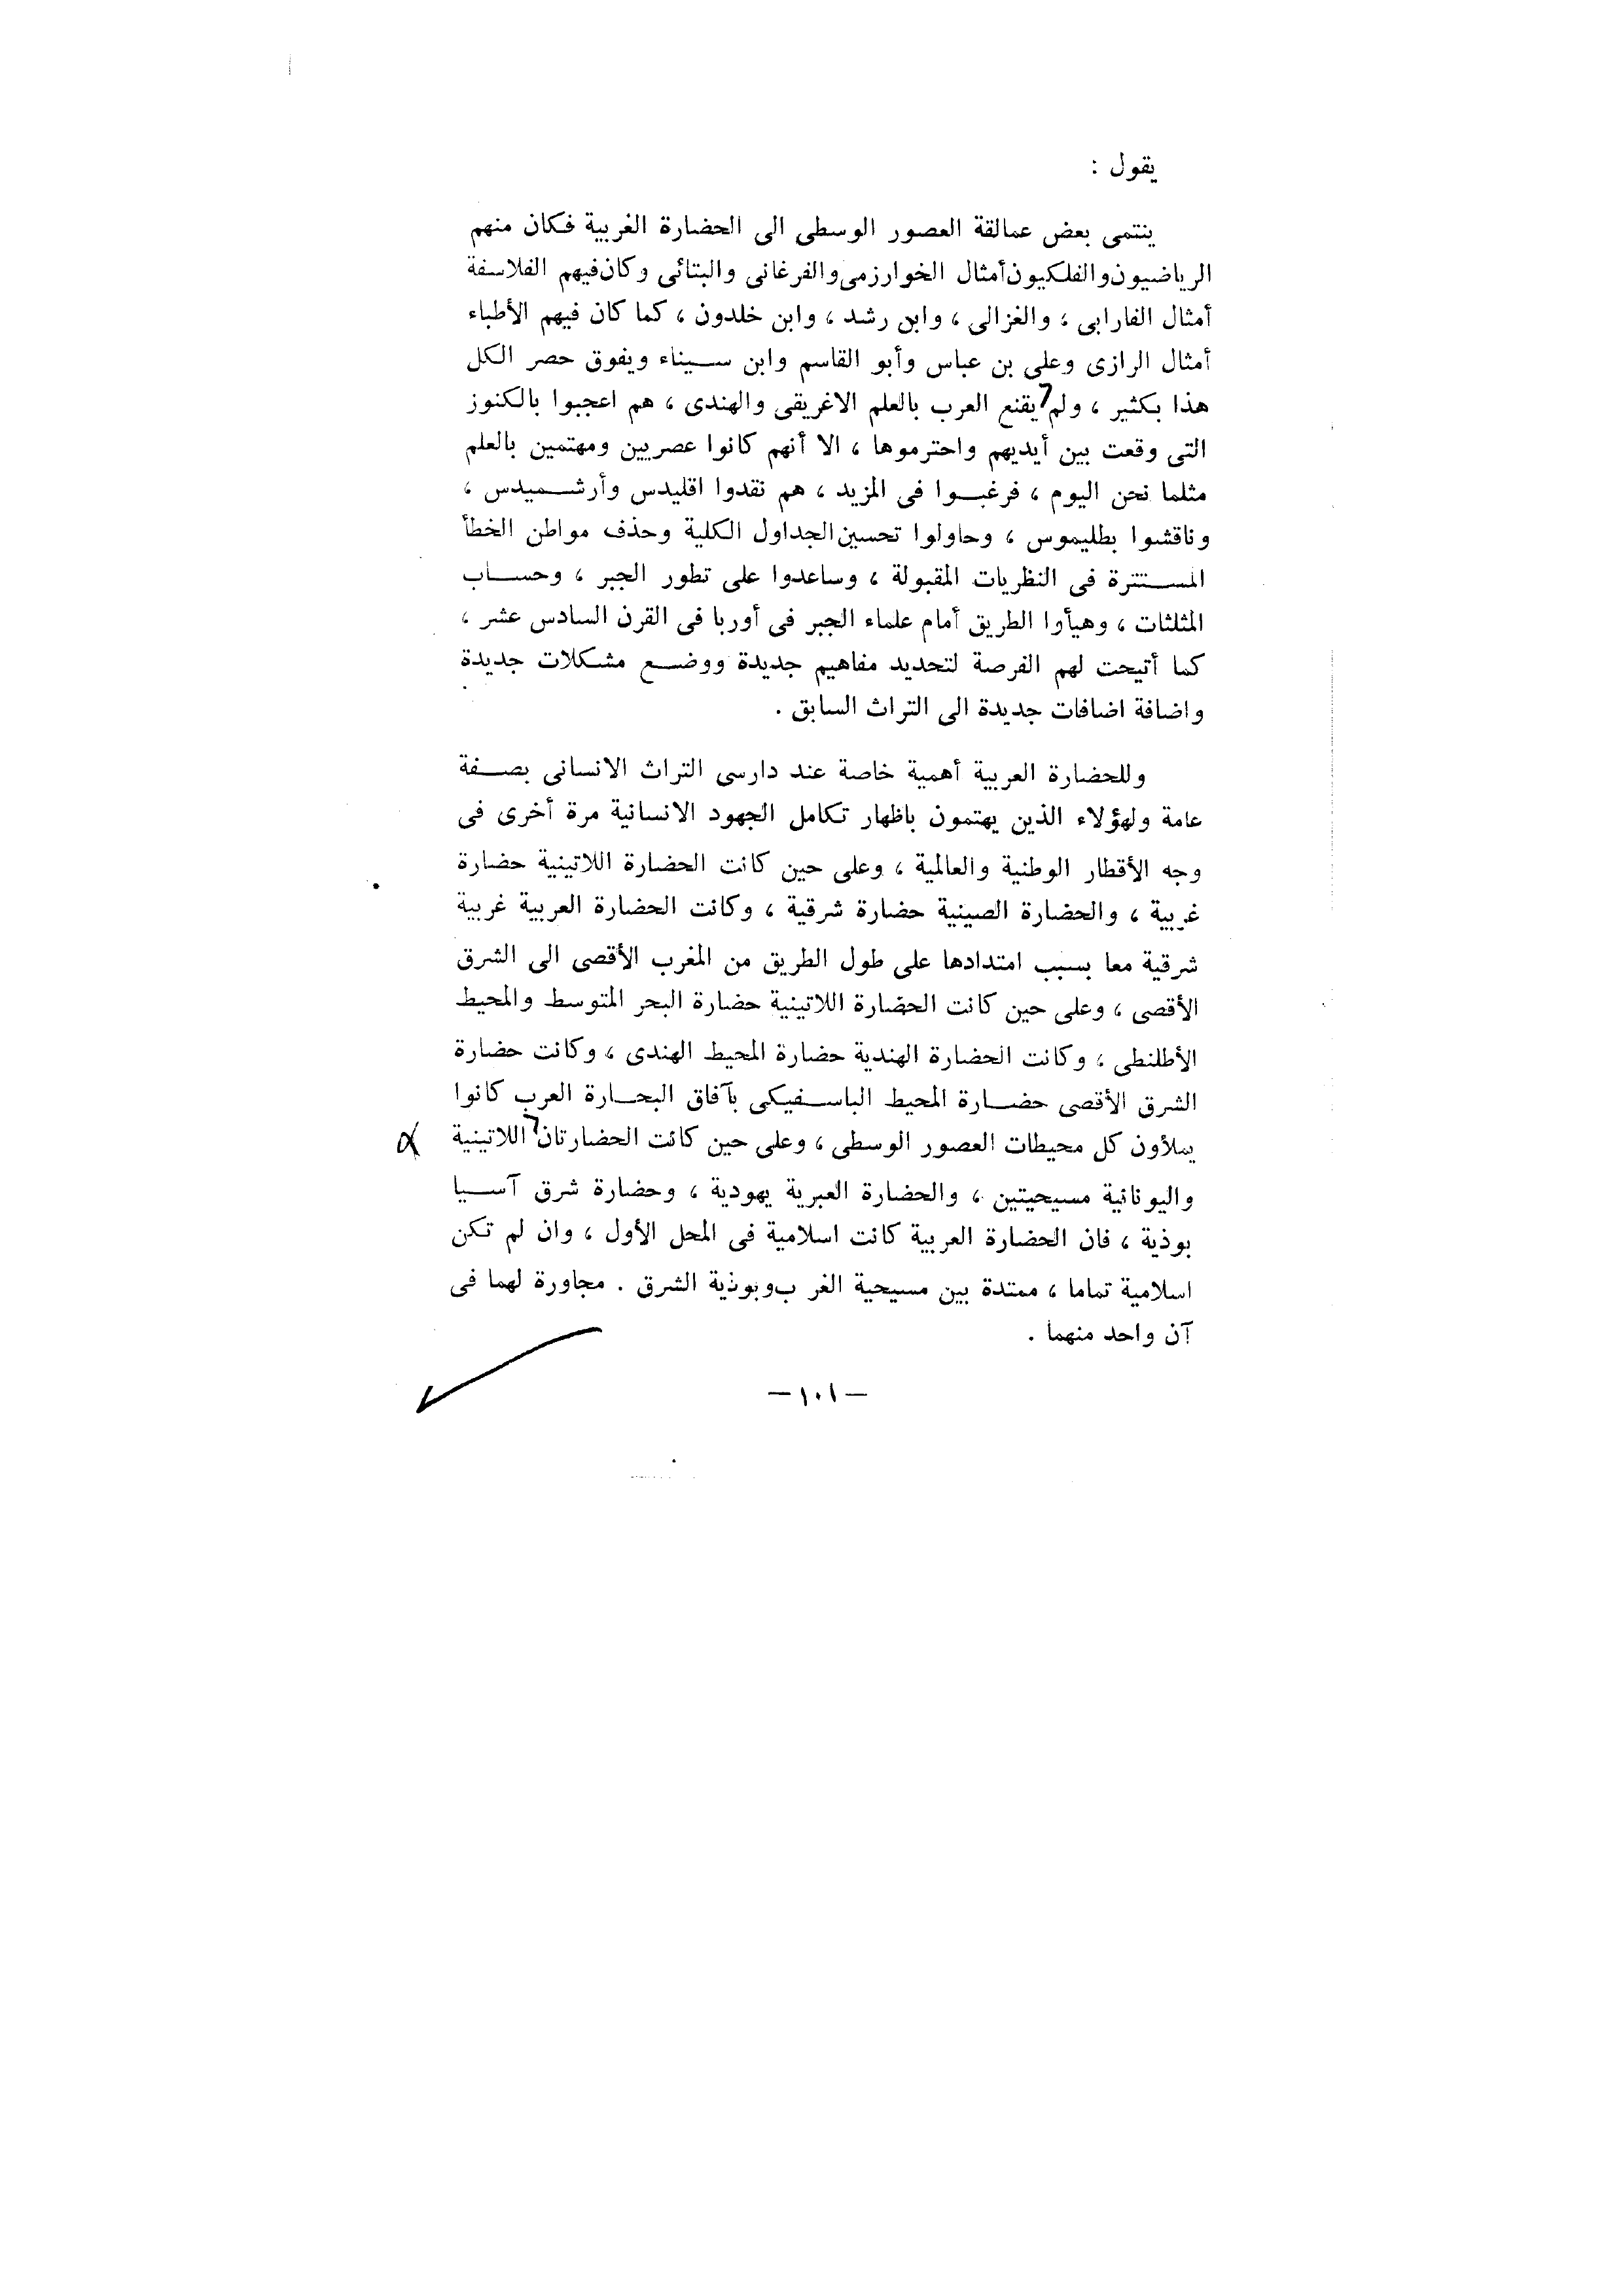 يقول :
ينتمى بعض عمالقة العصور الوسطى الى الحضارة الغربية فكان منهم
الرياضيون والفلكيون أمثال الخوارزمى والفرغانى والبتائى وكان فيهم الفلاسفة
أمثال الفارابى ، والغزالى ، وابن رشد ، وابن خلدون ، كما كان فيهم الأطباء
أمثال الرازى وعلى بن عباس وأبو القاسم وابن سيناء ويفوق حصر الكل
هذا بكثير ، ولم يقنع العرب بالعلم الاغريقى والهندى ، هم اعجبوا بالكنوز
التى وقعت بين أيديهم واحترموها ، الا أنهم كانوا عصريين ومهتمين بالعلم
مثلما نحن اليوم ، فرغبوا فى المزيد ، هم نقدوا اقليدس وأرشميدس ،
وناقشوا بطليموس ، وحاولوا تحسين الجداول الكلية وحذف مواطن الخطأ
المستترة فى النظريات المقبولة ، وساعدوا على تطور الجبر ، وحساب
المثلثات ، وهيأوا الطريق أمام علماء الجبر فى أوربا فى القرن السادس عشر ،
كما أتيحت لهم الفرصة لتحديد مفاهيم جديدة ووضع مشكلات جديدة
واضافة اضافات جديدة الى التراث السابق .
وللحضارة العربية أهمية خاصة عند دارسى التراث الانسانى بصفة
عامة ولهؤلاء الذين يهتمون باظهار تكامل الجهود الانسانية مرة أخرى فى
وجه الأقطار الوطنية والعالمية ، وعلى حين كانت الحضارة اللاتينية حضارة
غربية ، والحضارة الصينية حضارة شرقية ، وكانت الحضارة العربية غربية
شرقية معا بسبب امتدادها على طول الطريق من المغرب الأقصى الى الشرق
الأقصى ، وعلى حين كانت الحضارة اللاتينية حضارة البحر المتوسط والمحيط
الأطلنطى ، وكانت الحضارة الهندية حضارة المحيط الهندى ، وكانت حضارة
الشرق الأقصى حضارة المحيط الباسفيكى بآفاق البحارة العرب كانوا
يملأون كل محيطات العصور الوسطى ، وعلى حين كانت الحضارتان اللاتينية
واليونانية مسيحيتين ، والحضارة العبرية يهودية ، وحضارة شرق آسيا
بوذية ، فان الحضارة العربية كانت اسلامية فى المحل الأول ، وان لم تكن
اسلامية تماما ، ممتدة بين مسيحية الغر ب وبوذية الشرق . مجاورة لهما فى
آن واحد منهما .
— ١٠١ —